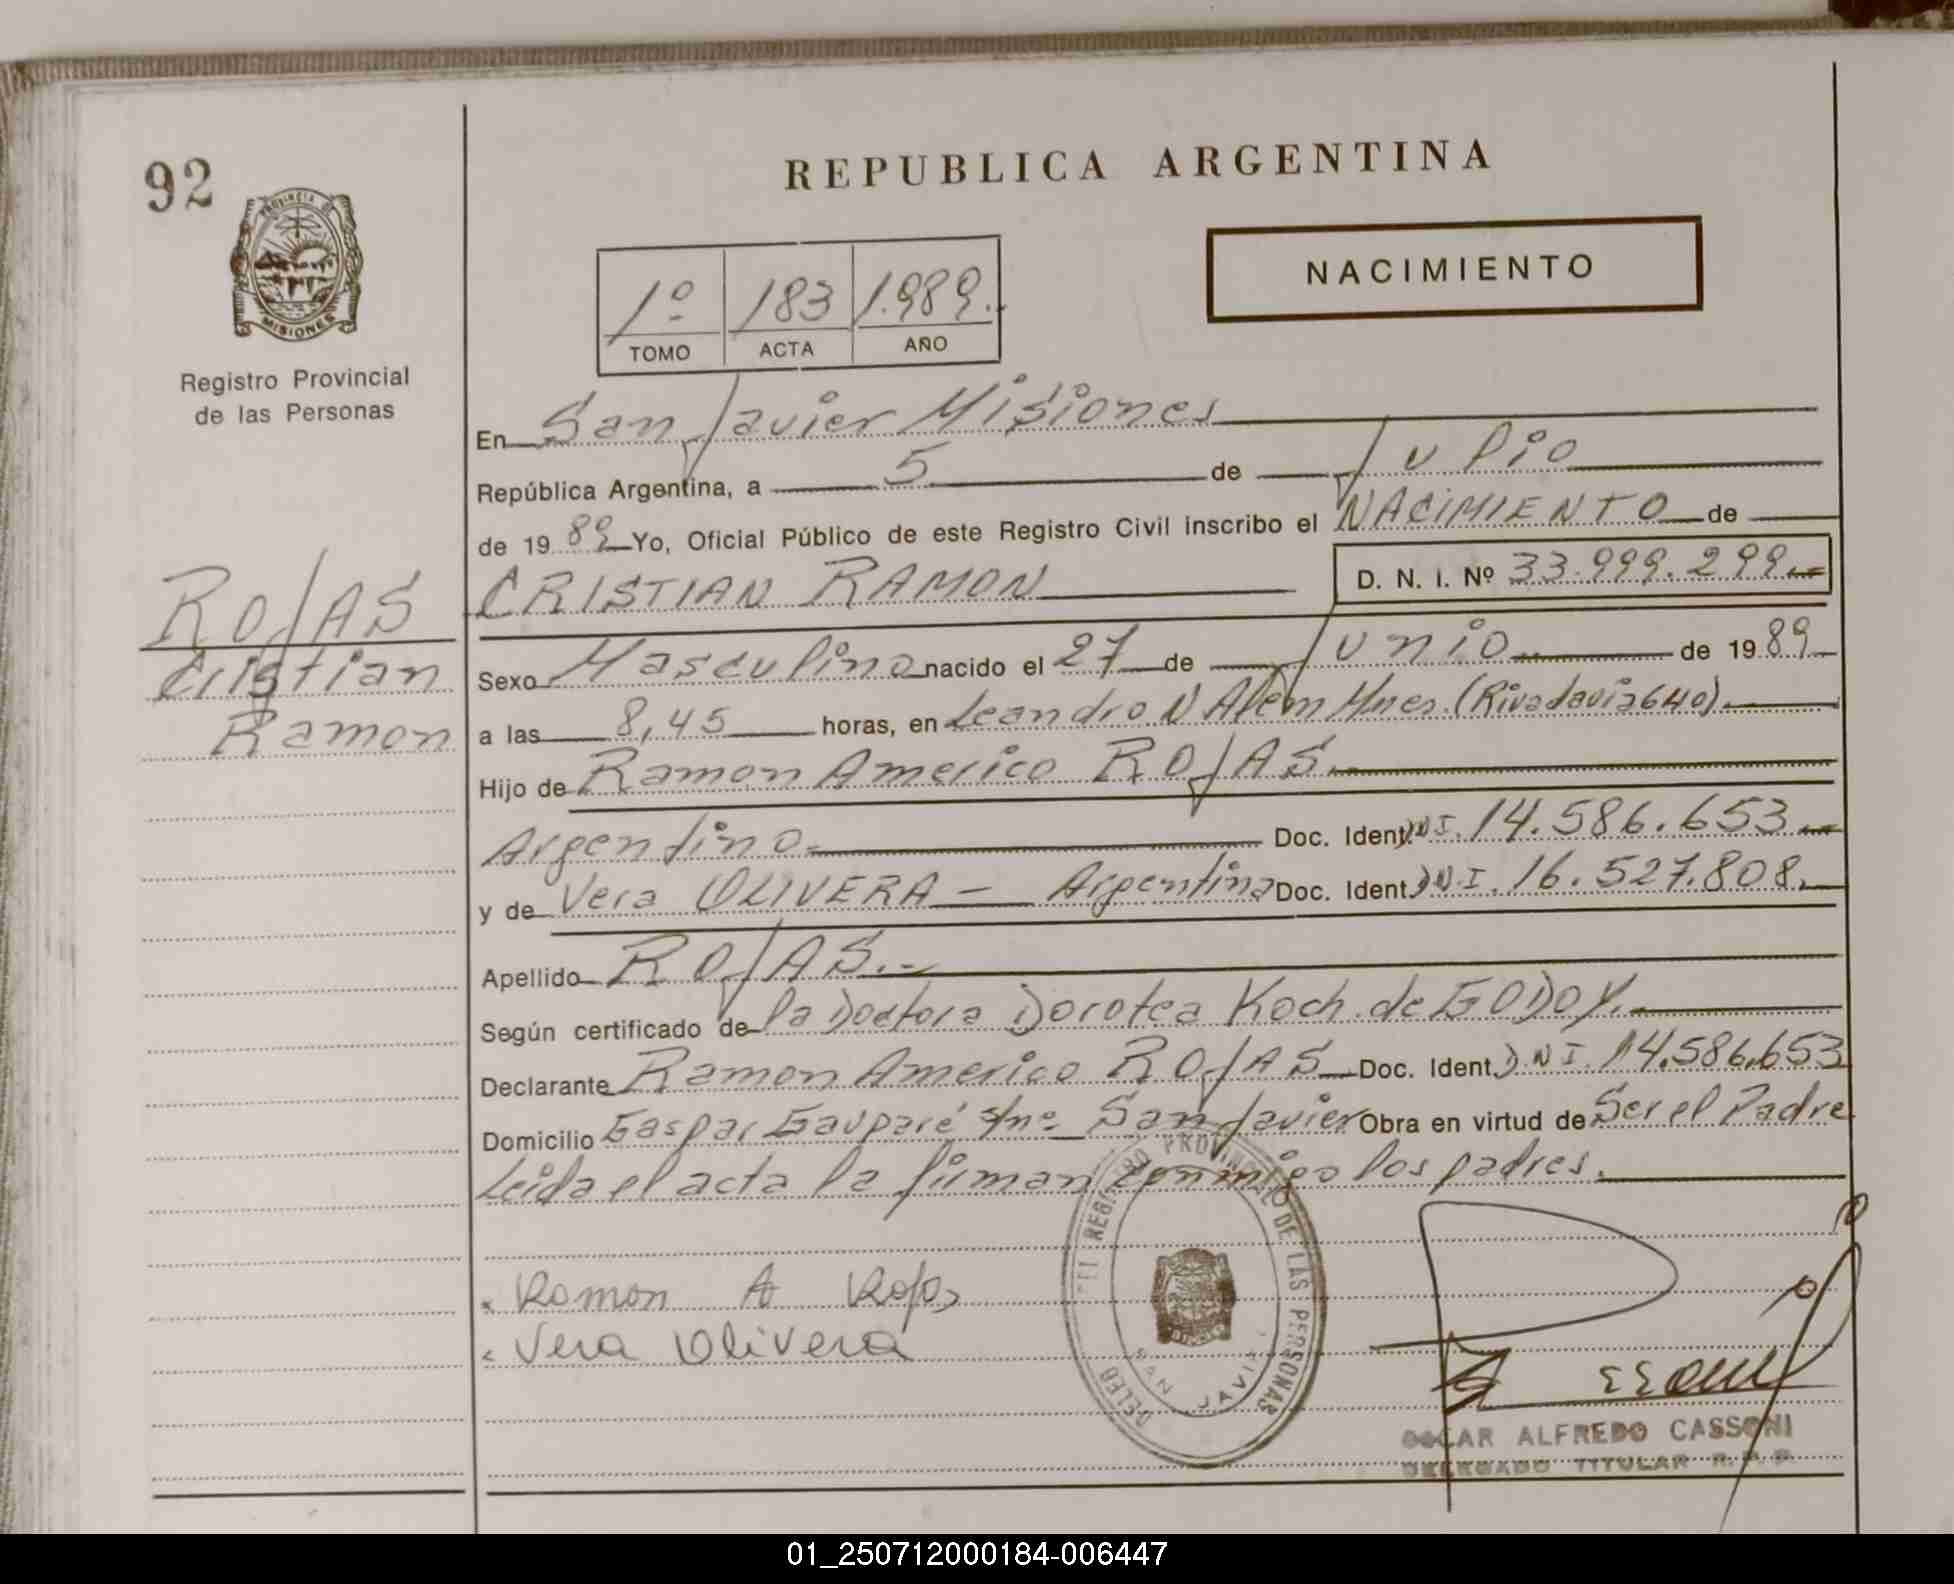 92
PROVINCIA DE
MISIONES
Registro Provincial
de las Personas
ROJAS
Cristian
Ramon
REPUBLICA ARGENTINA
1º 183 1.989.
TOMO ACTA AÑO
NACIMIENTO
En San Javier Misiones
República Argentina, a 5 de Julio
de 19 89 Yo, Oficial Público de este Registro Civil inscribo el NACIMIENTO de
CRISTIAN RAMON D. N. I. Nº 33.999.299.-
Sexo Masculino nacido el 27 de Junio de 19 89
a las 8,45 horas, en Leandro N Alem Mnes. (Rivadavia 640).
Hijo de Ramon Americo ROJAS.-
Argentino.- Doc. Ident. DNI. 14.586.653.-
y de Vera OLIVERA - Argentina Doc. Ident. DNI. 16.527.808.
Apellido ROJAS.-
Según certificado de la Doctora Dorotea Koch de GODOY.
Declarante Ramon Americo ROJAS Doc. Ident. DNI. 14.586.653
Domicilio Gaspar Gauparé s/nº San Javier Obra en virtud de Ser el Padre
Leida el acta la firman conmigo los padres.
Ramon A Rojas
Vera Olivera
DELEG DEL REGISTRO PROVINCIAL DE LAS PERSONAS
SAN JAVIE
OSCAR ALFREDO CASSONI
DELEGADO TITULAR R.P.P.
01_250712000184-006447